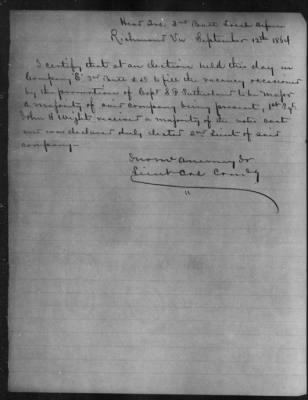 Head Qrs 3rd Batt Local Defence
Richmond Va September 12th 1864
I certify that at an election held this day in
Company "E" 3rd Batt to fill the vacancy occasioned
by the promotion of Capt S. P. Sutherland to be Major
a majority of said company being present, 1st Sgt
John H Wright received a majority of the votes cast
and was declared duly elected 2nd Lieut of said
company
McAnerney Jr
Lieut Col Comdg
"